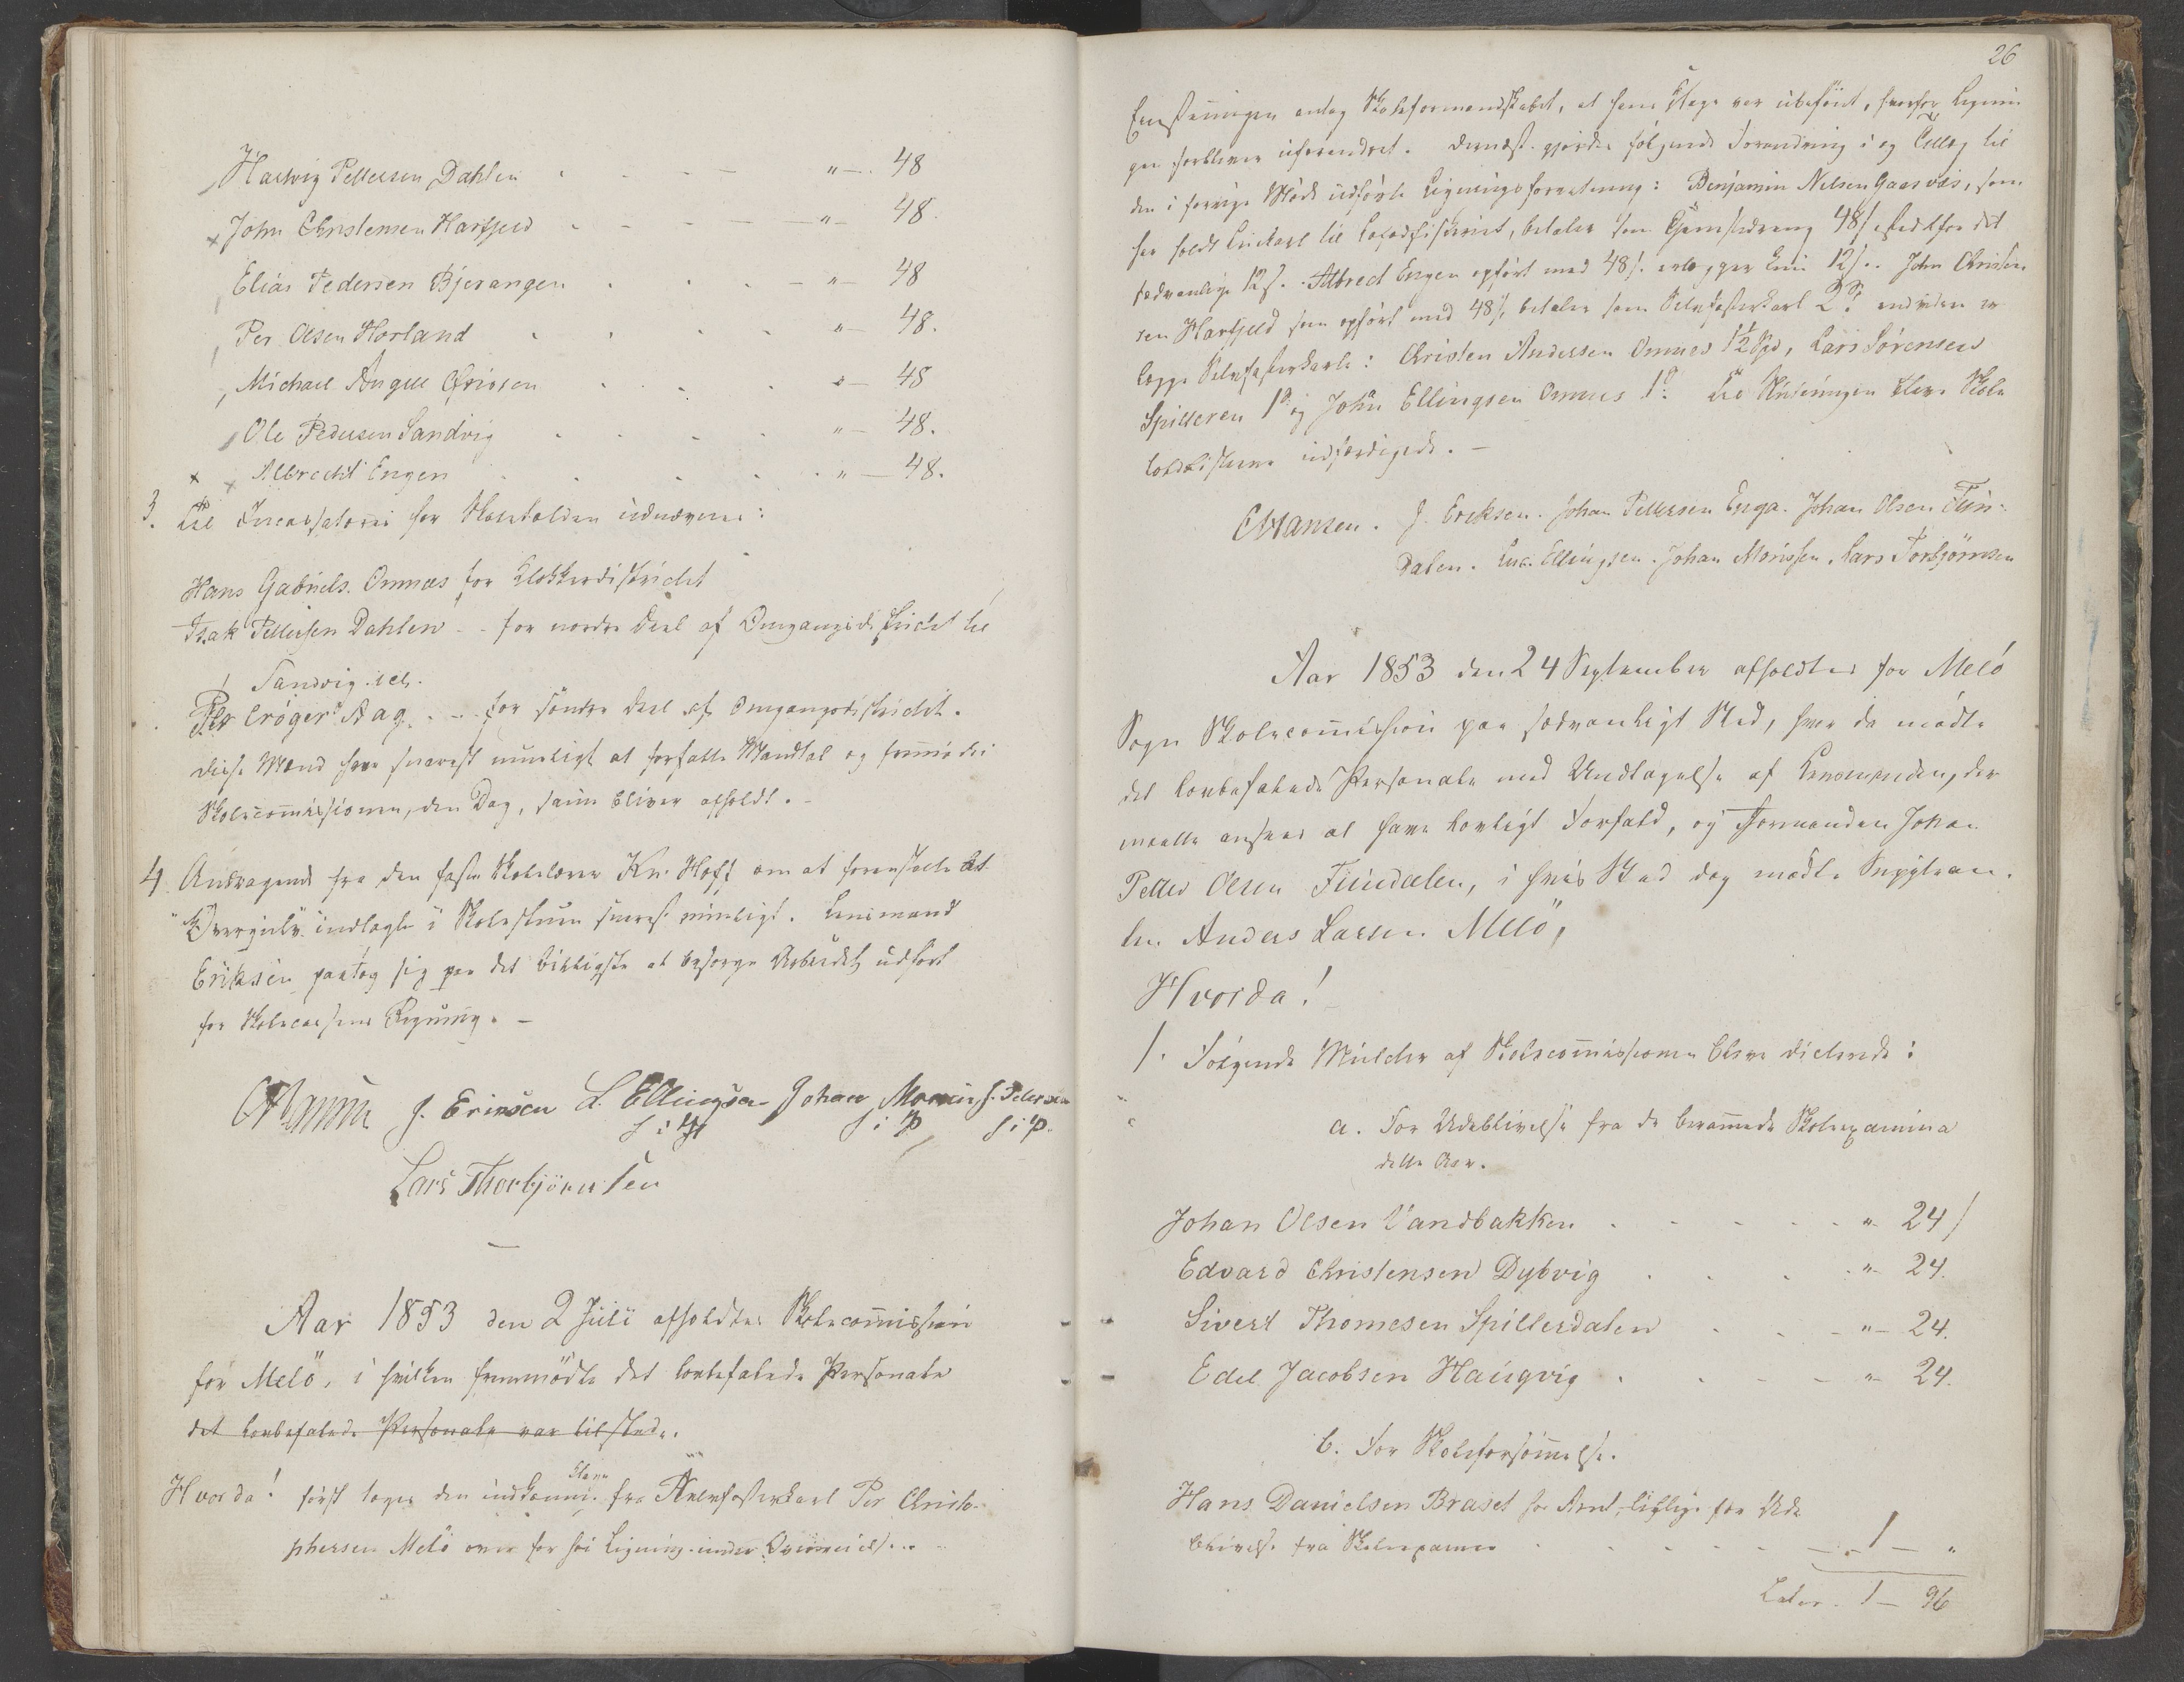 Hartvig Pettersen Dahlen . . . . " — 48
John Christensen Harfjeld . . . . " — 48.
Elias Pedersen Bjerangen . . . . " — 48
Per Olsen Horland . . . . " — 48.
Michael Angell Ericsen . . . . " — 48
Ole Pedersen Sandvig . . . . " — 48.
Albrecht Engen . . . . " — 48.
3. Til Incassatorer for Skoletolden udnævnes:
Hans Gabriels. Omnæs for Klokkerdistrictet
Isak Pettersen Dahlen - for nordre Deel af Omgangsdistrictet til
Sandvig incl.
Per Crøger Aag - for søndre Deel af Omgangsdistrictet.
Disse Mænd have snarest mueligt at forfatte Mandtal og fremmøde i
Skolecommissionen, den Dag, samme bliver afholdt.
4. Andragende fra den faste Skolelærer Kr. Hoft om at foranstalte et
Overgulv indlagt i Skolestuen snarest mueligt. Lensmand
Eriksen paatog sig paa det billigste at besørge Arbeidet udført
for Skolecassens Regning. —
CHansen J. Eriksen L. Ellingsen Johan Morius J. Petersen
Lars Thorbjørnsen
Aar 1853 den 2 Juli afholdtes Skolecommission
for Melø, i hvilken fremmødte det lovbefalede Personale
det lovbefalede Personale var tilstede.
Hvorda! først toges den indkomne Klage fra Selvfosterkarl Per Christo-
phersen Melø over for høi Ligning under Overveielse.
26
Skoleformandskabet, at hans Klage var ubeføiet, hvorfor Lignin
gen forbliver uforandret. Dernæst gjordes følgende Forandring i og Tillæg til
den i forrige Møde udførte Ligningsforretning: Benjamin Nilsen Gaasvær, som
48 s istedetfor det
sædvanlige 12 s. Albrect Engen opført med 48 s. erlægger kun 12 s. John Christen
sen Harfjeld som opført med 48 s, betaler som Selvfosterkarl 2 endvidere er
lægge Selvfosterkarle: Christen Andersen Omnæs 1½ Spd, Lars Sørensen
Spilderen 1 og John Ellingsen Omnes 1. Til Slutningen bleve Skole
toldlisterne udfærdigede. —
CHansen. J. Eriksen. Johan Pettersen Enga. Johan Olsen Fun-
dalen. Ellingsen. Johan Morissen. Lars Torbjörnsen
Aar 1853 den 24 September afholdtes for Melö
Sogn Skolecommission paa sædvanligt Sted, hvor da mødte
det lovbefalede Personale med Undtagelse af Lensmanden, der
maatte ansees at have lovligt Forfald, og Formanden Johan
Petter Olsen Fundalen, i hvis Sted dog mødte Suppléan-
ten Anders Larsen Melö,
Hvorda!
1. Følgende Mulcter af Skolecommissionen bleve dicterede:
a. For Udeblivelse fra de berammede Skoleexamina
dette Aar.
Johan Olsen Vandbakken . . . . " 24 s
Edvard Christensen Dybvig . . . . " 24.
Sivert Thomesen Spillerdalen . . . " — 24.
Edel Jacobsen Haugvig . . . . " 24.
b. For Skoleforsømmelse.
Hans Danielsen Braset for Arnt, ligeledes for Ude
blivelse fra Skoleexamen . . . . 1 — "
Latus. 1 — 96